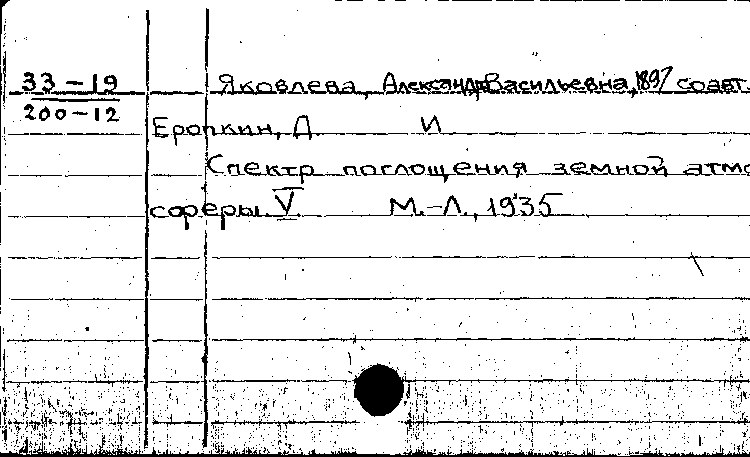 33-19 Яковлева, Александра Васильевна, 1897 соавт.
200-12
Еропкин, Д. И.
Спектр поглощения земной атмо
сферы. V. М.-Л., 1935